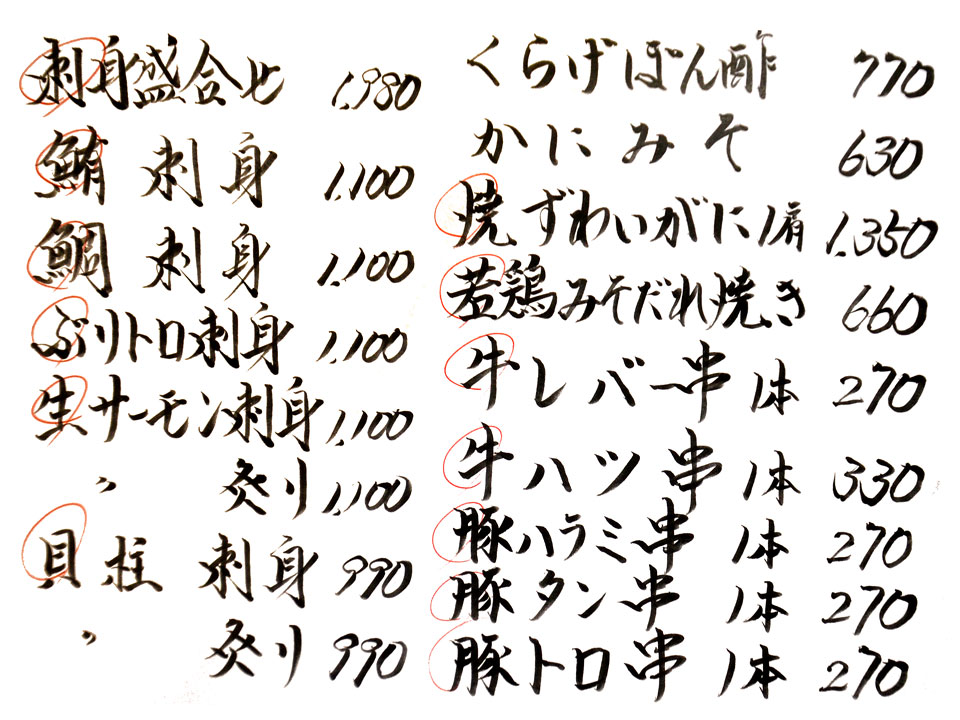 刺身盛合せ 1,980
鮪 刺身 1,100
鯛 刺身 1,100
ぶりトロ刺身 1,100
生サーモン刺身 1,100
〃 炙り 1,100
貝柱 刺身 990
〃 炙り 990
くらげぽん酢 770
かにみそ 630
焼ずわいがに1肩 1,350
若鶏みそだれ焼き 660
牛レバー串 1本 270
牛ハツ串 1本 330
豚ハラミ串 1本 270
豚タン串 1本 270
豚トロ串 1本 270